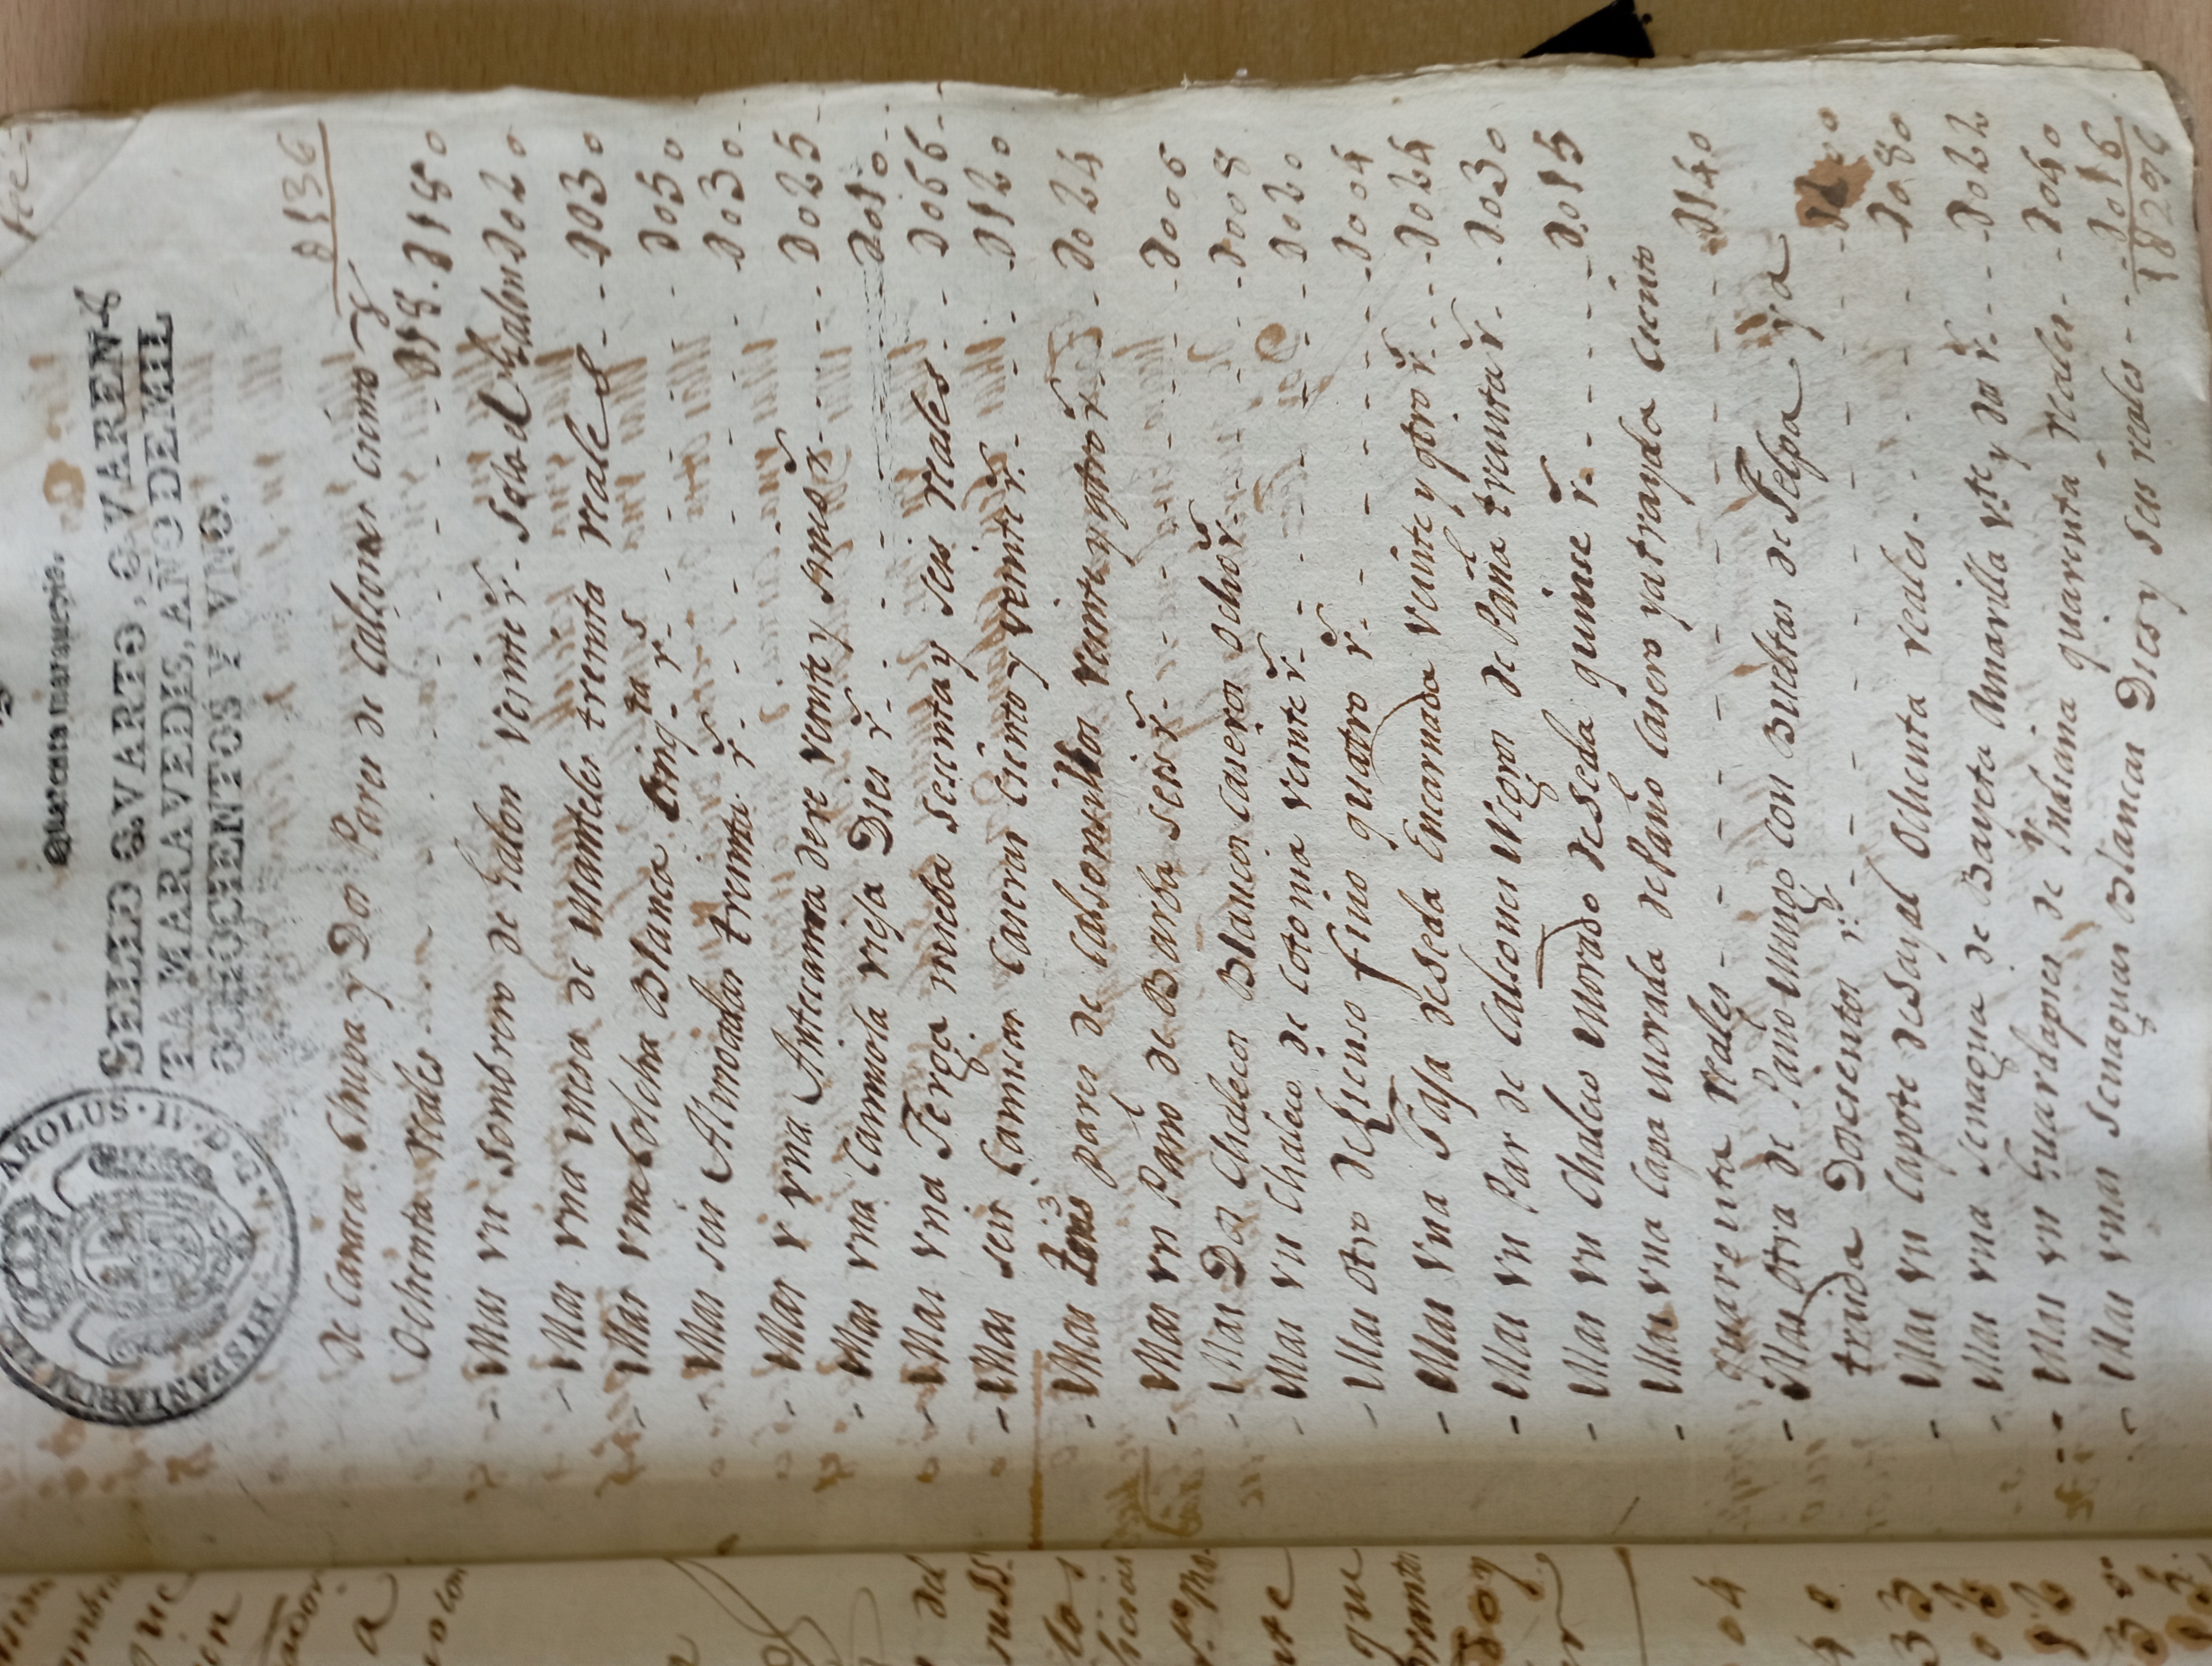 HISPANIARUM CAROLUS · II · D · G ·
Quarenta maravedis.
SELLO QVARTO, QVAREN-
TA MARAVEDIS, AÑO DE MIL
OCHOCIENTOS Y VNO.
0136
de Casaca Chupa y Dos Pares de Calsones ciento y
Ochenta reales - - - 018. 0180
- Mas vn sombrero de Galon veinte rs. solo el Galon 0020
- Mas vna mesa de manteles treinta reales - - 0030
- Mas vna Colcha Blanca cinqta. rs. - - - 0050
- Mas seis Almoadas treinta rs. - - - 0030
- Mas v vna Antecama de re veinte y sinco rs. - - - 0025
- Mas vna Camisola vieja Dies rs. - - - 0010
- Mas vna Jerga nueba sesenta y seis reales - - 0066
- Mas seis Camisas Caseras Ciento y veinte rs. - - - 0120
- Mas 3 pares de Calsonsillos veinte y qtro rs. - - 0024
- Mas vn Paño de Barba seis rs. - - - 0006
- Mas Dos Chalecos Blancos Caseros Ocho rs. - - - 0008
- Mas vn Chaleco de Cotonia veinte rs. - - - 0020
- Mas otro de Lienso fino quatro rs. - - - 0004
- Mas vna Faja de seda Encarnada veinte y qtro rs. - - - 0024
- Mas vn Par de Calsones Negros de Paña treinta rs. - 0030
- Mas vn Chaleco morado de seda quinse rs. - - - 0015
- Mas vna Capa morada de Paño Casero ya trayda Ciento
quarenta reales - - - 0140
- Mas otra de Paño Musgo con Bueltas de Felpa ya
traida Doscientos rs. - - - 0200
- Mas vn Capote de Sayal Ochenta reales - - - 0080
- Mas vna senagua de Bayeta Amarilla vte. y dos rs. - - - 0022
- Mas vn Guardapies de Yndiana quarenta reales - - 0040
- Mas vnas senaguas Blancas Dies y seis reales - - 0016
18296